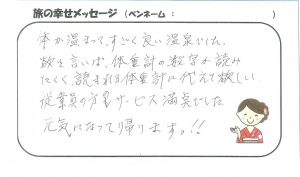 旅の幸せメッセージ (ペンネーム : )
体が温まって、すごく良い温泉でした。
欲を言えば、体重計の数字が読み
にくく、読まれる体重計に代えて欲しい
従業員の方星サービス満点でした
元気になって帰ります。!!